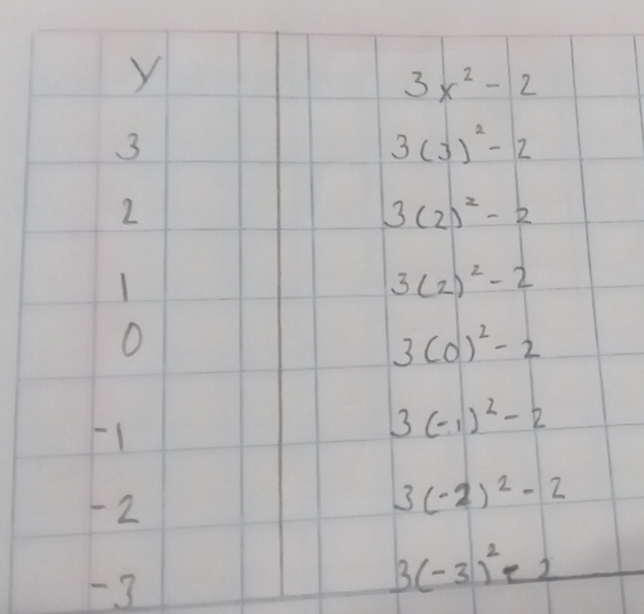 y 3x² - 2
3 3(3)² - 2
2 3(2)² - 2
1 3(2)² - 2
0 3(0)² - 2
-1 3(-1)² - 2
-2 3(-2)² - 2
-3 3(-3)² - 2